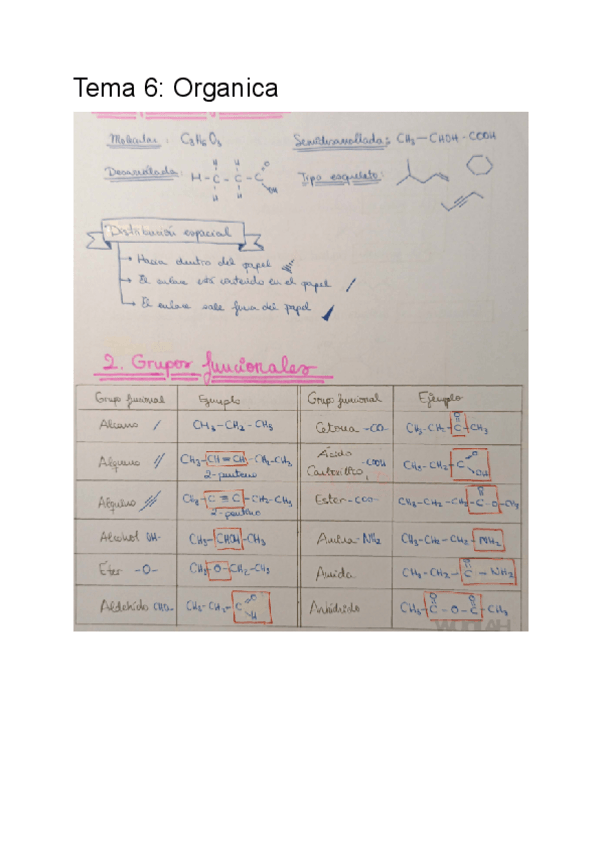 Tema 6: Organica
Molecular: C3H6O3 Semidesarrollada: CH3-CHOH-COOH
Desarrollada: H-C-C-C Tipo esqueleto:
H H O
H H OH
Distribución espacial
→ Hacia dentro del papel
→ El enlace está contenido en el papel
→ El enlace sale fuera del papel
2. Grupos funcionales
Grupo funcional Ejemplo Grupo funcional Ejemplo
Alcano / CH3-CH2-CH3 Cetona -CO- CH3-CH2-C-CH3
O
Alqueno // CH3-CH=CH-CH2-CH3 Ácido Carboxílico -COOH CH3-CH2-C
2-penteno O OH
Alquino /// CH3-C≡C-CH2-CH3 Ester -COO- CH3-CH2-CH2-C-O-CH3
O
Alcohol OH- CH3-CHOH-CH3 Amina -NH2 CH3-CH2-CH2-NH2
Éter -O- CH3-O-CH2-CH3 Amida CH3-CH2-C-NH2
O
Aldehído CHO- CH3-CH2-C Anhídrido CH3-C-O-C-CH3
O H O O
WUOLAH